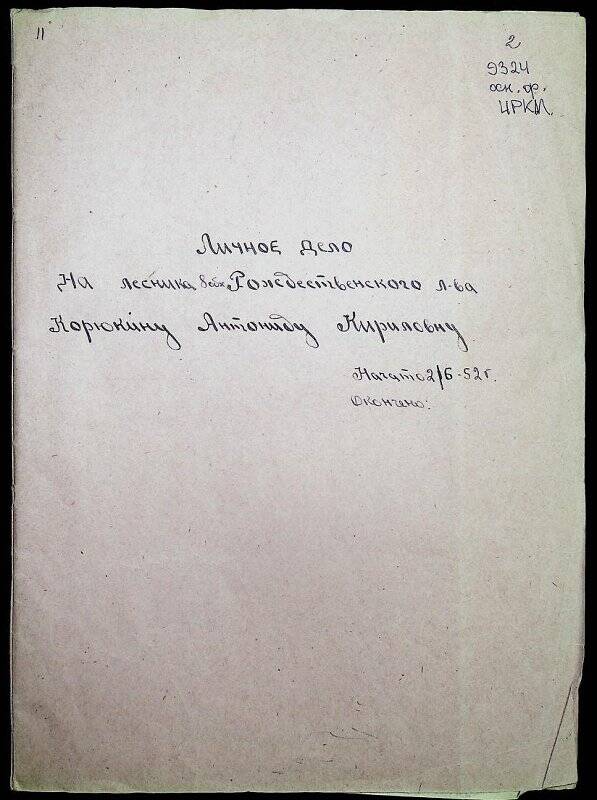 11
2
9324
осн. ф.
ЦРКМ.
Личное дело
На лесника Рождественского л-ва
Корюкину Антониду Кириловну
Начато 2/6-52г.
Окончено: